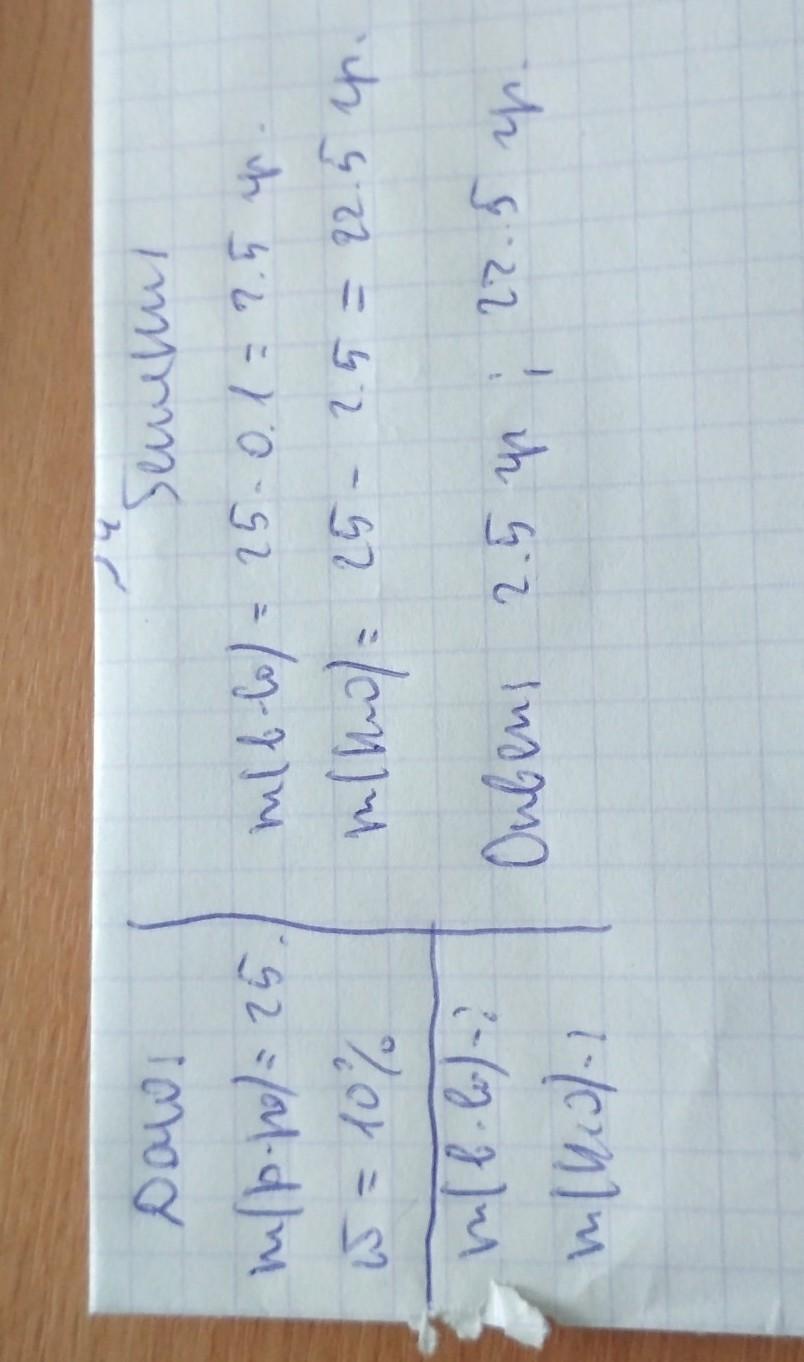 Дано:
m(р-ра) = 25.
ω = 10%
m(в-ва) - ?
m(H2O) - ?
Решение:
m(в-ва) = 25 · 0.1 = 2.5 гр.
m(H2O) = 25 - 2.5 = 22.5 гр.
Ответ: 2.5 гр ; 22.5 гр.